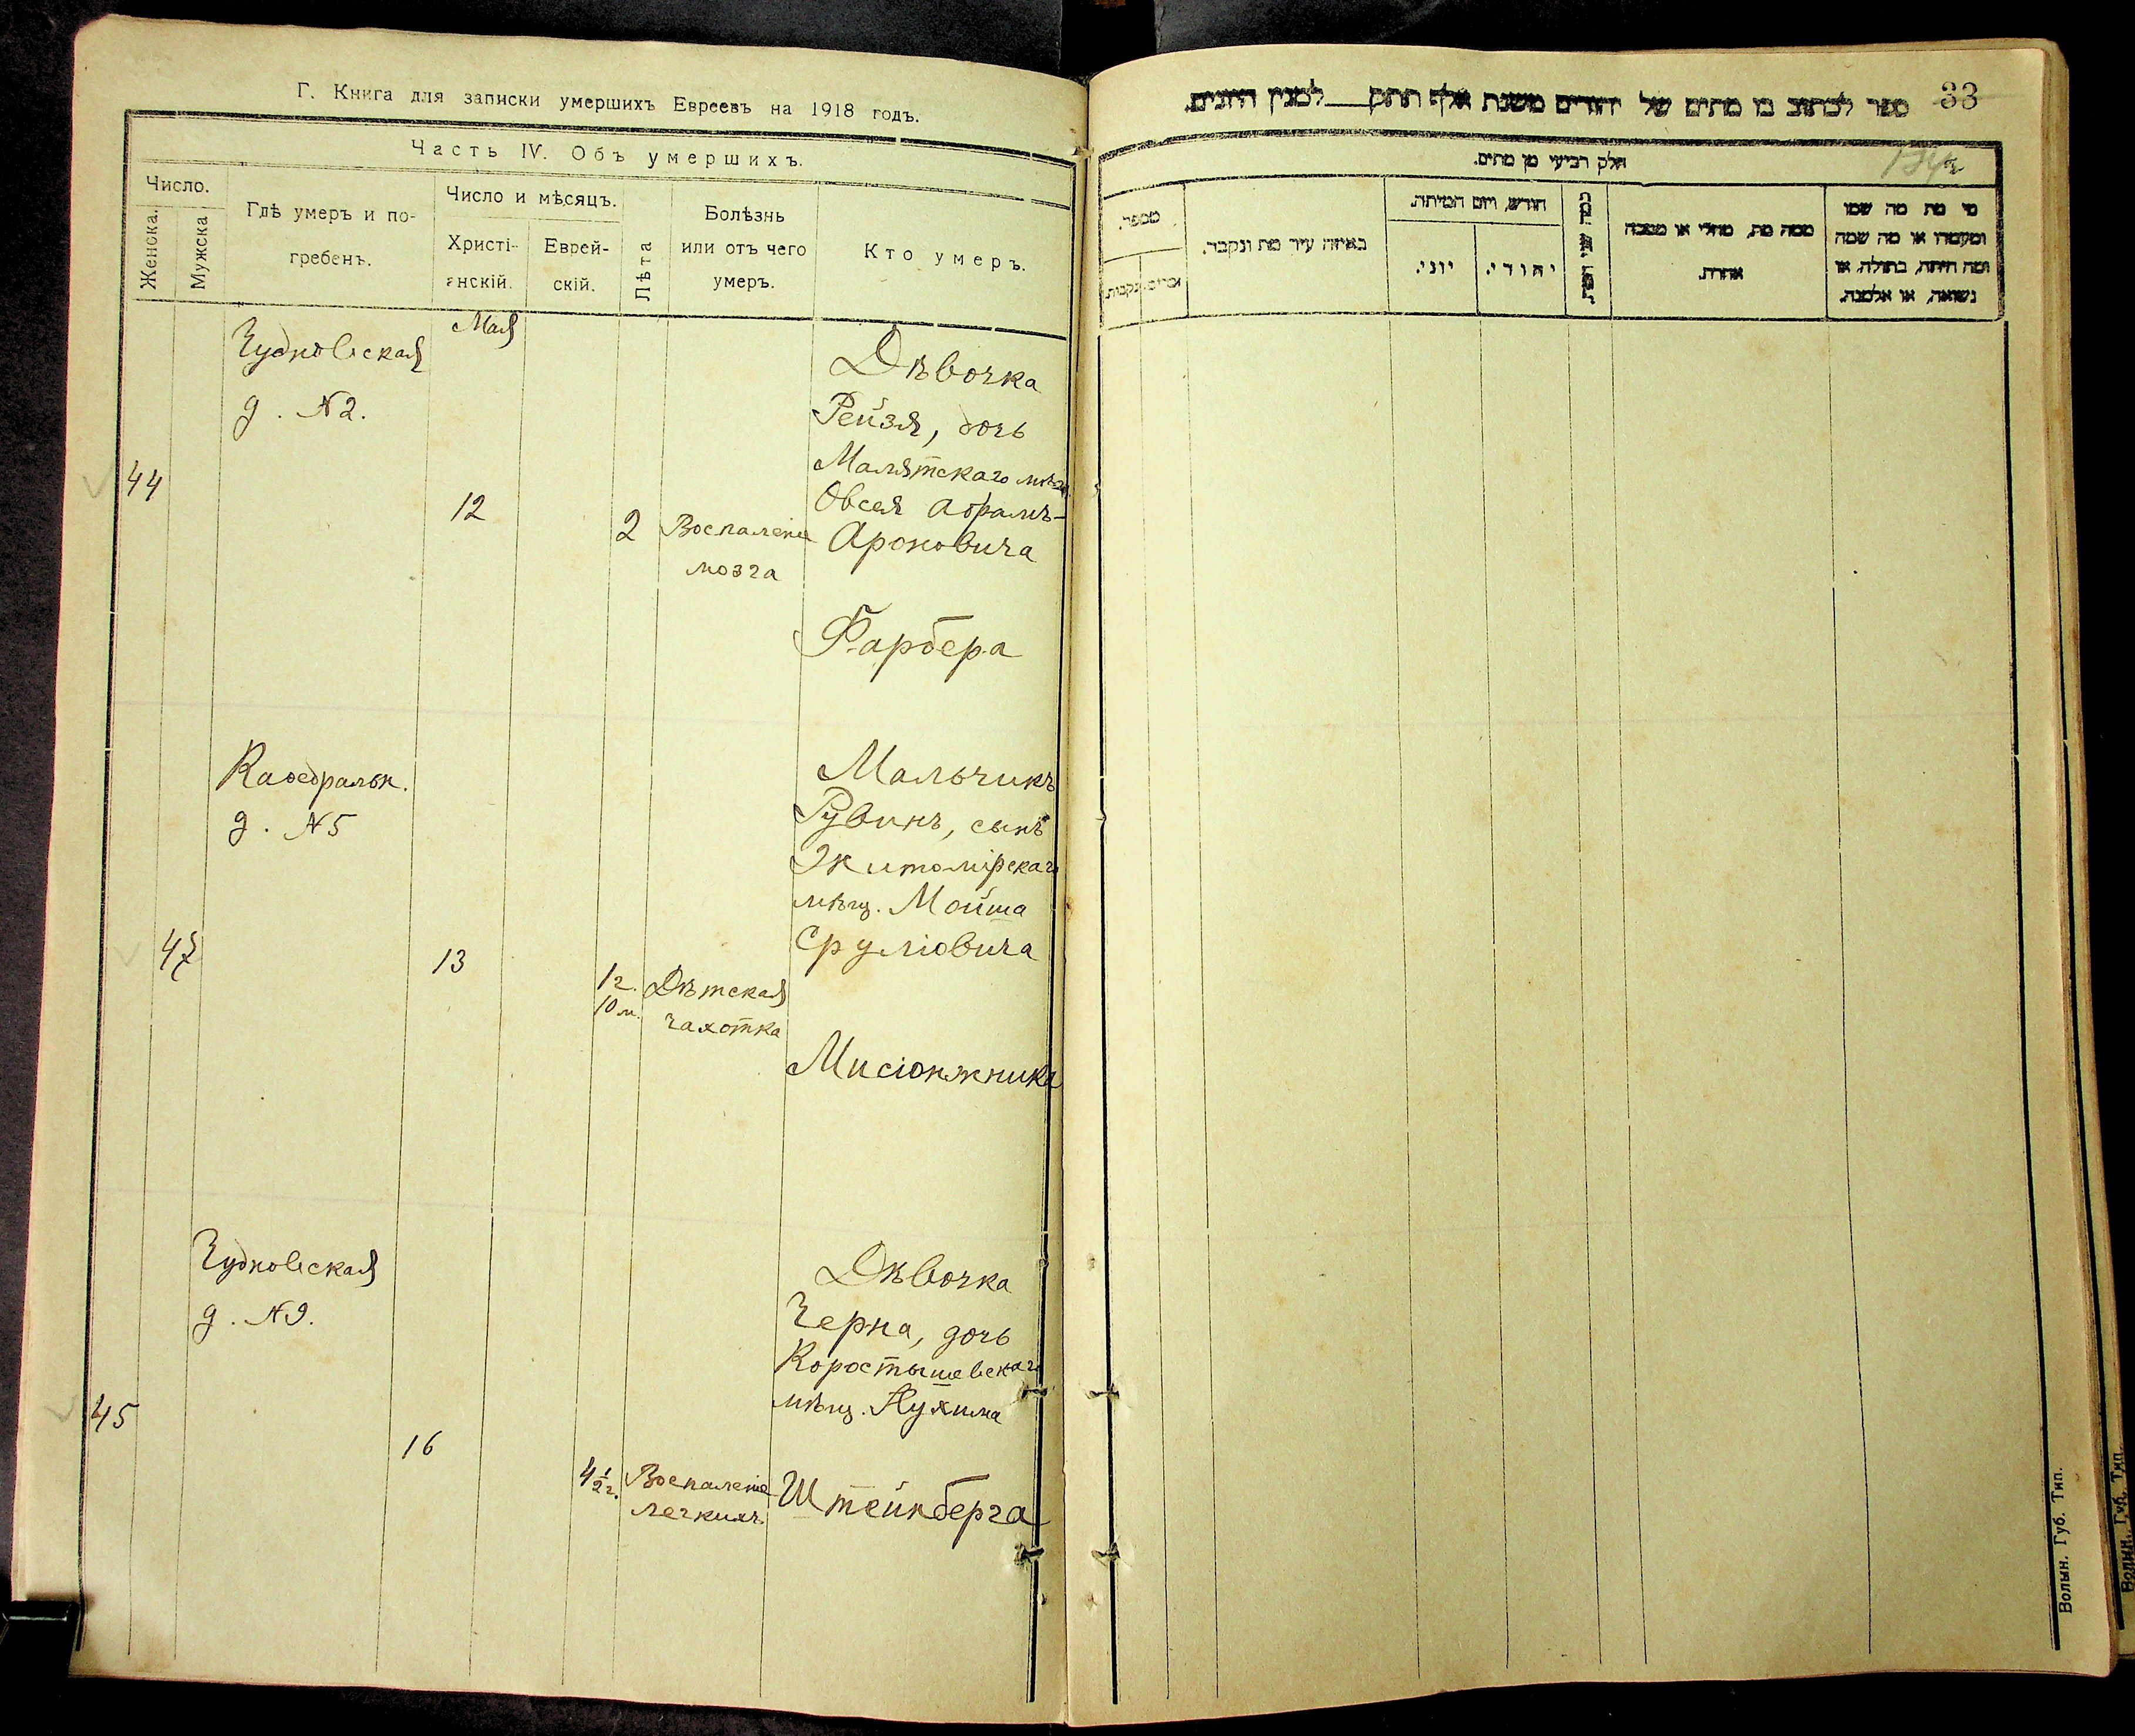 Г. Книга для записки умершихъ Евреевъ на 1918 годъ.
Часть IV. Объ умершихъ.
Число.
Женска.
Мужска
Гдѣ умеръ и по-
гребенъ.
Число и мѣсяцъ.
Христі-
анскій.
Еврей-
скій.
Лѣта
Болѣзнь
или отъ чего
умеръ.
Кто умеръ.
Мая
Чудновская
д. №2.
44
12
2
Воспаленіе
мозга
Дѣвочка
Рейзя, дочь
Овсея Абрамъ-
Ароновича
Фарбера
Каѳедральн.
д. №5
47
13
1 г.
10 м.
Дѣтская
чахотка
Мальчикъ
Рувинъ, сынъ
Житомірскаго
мѣщ. Мойша
Сруліовича
Мисіонжника
Чудновская
д. №9.
45
16
4 1/2 г.
Воспаленіе
легкихъ
Дѣвочка
Черна, дочь
Коростышевскаго
мѣщ. Нухима
Штейнберга
33
ספר לכתוב בו מתים של יהודים משנת אלף תתק למנין היונים.
חלק רביעי מן מתים.
מספר.
זכרים
נקבות
באיזה עיר מת ונקבר.
חודש, ויום המיתה.
יוני.
יהודי.
כמה שני המת
ממה מת, מחלי או מסבה
אחרת.
מי מת מה שמו
ומעמדו או מה שמה
ומה היתה, בתולה, או
נשואה, או אלמנה.
Волын. Губ. Тип.
Волын. Губ. Тип.